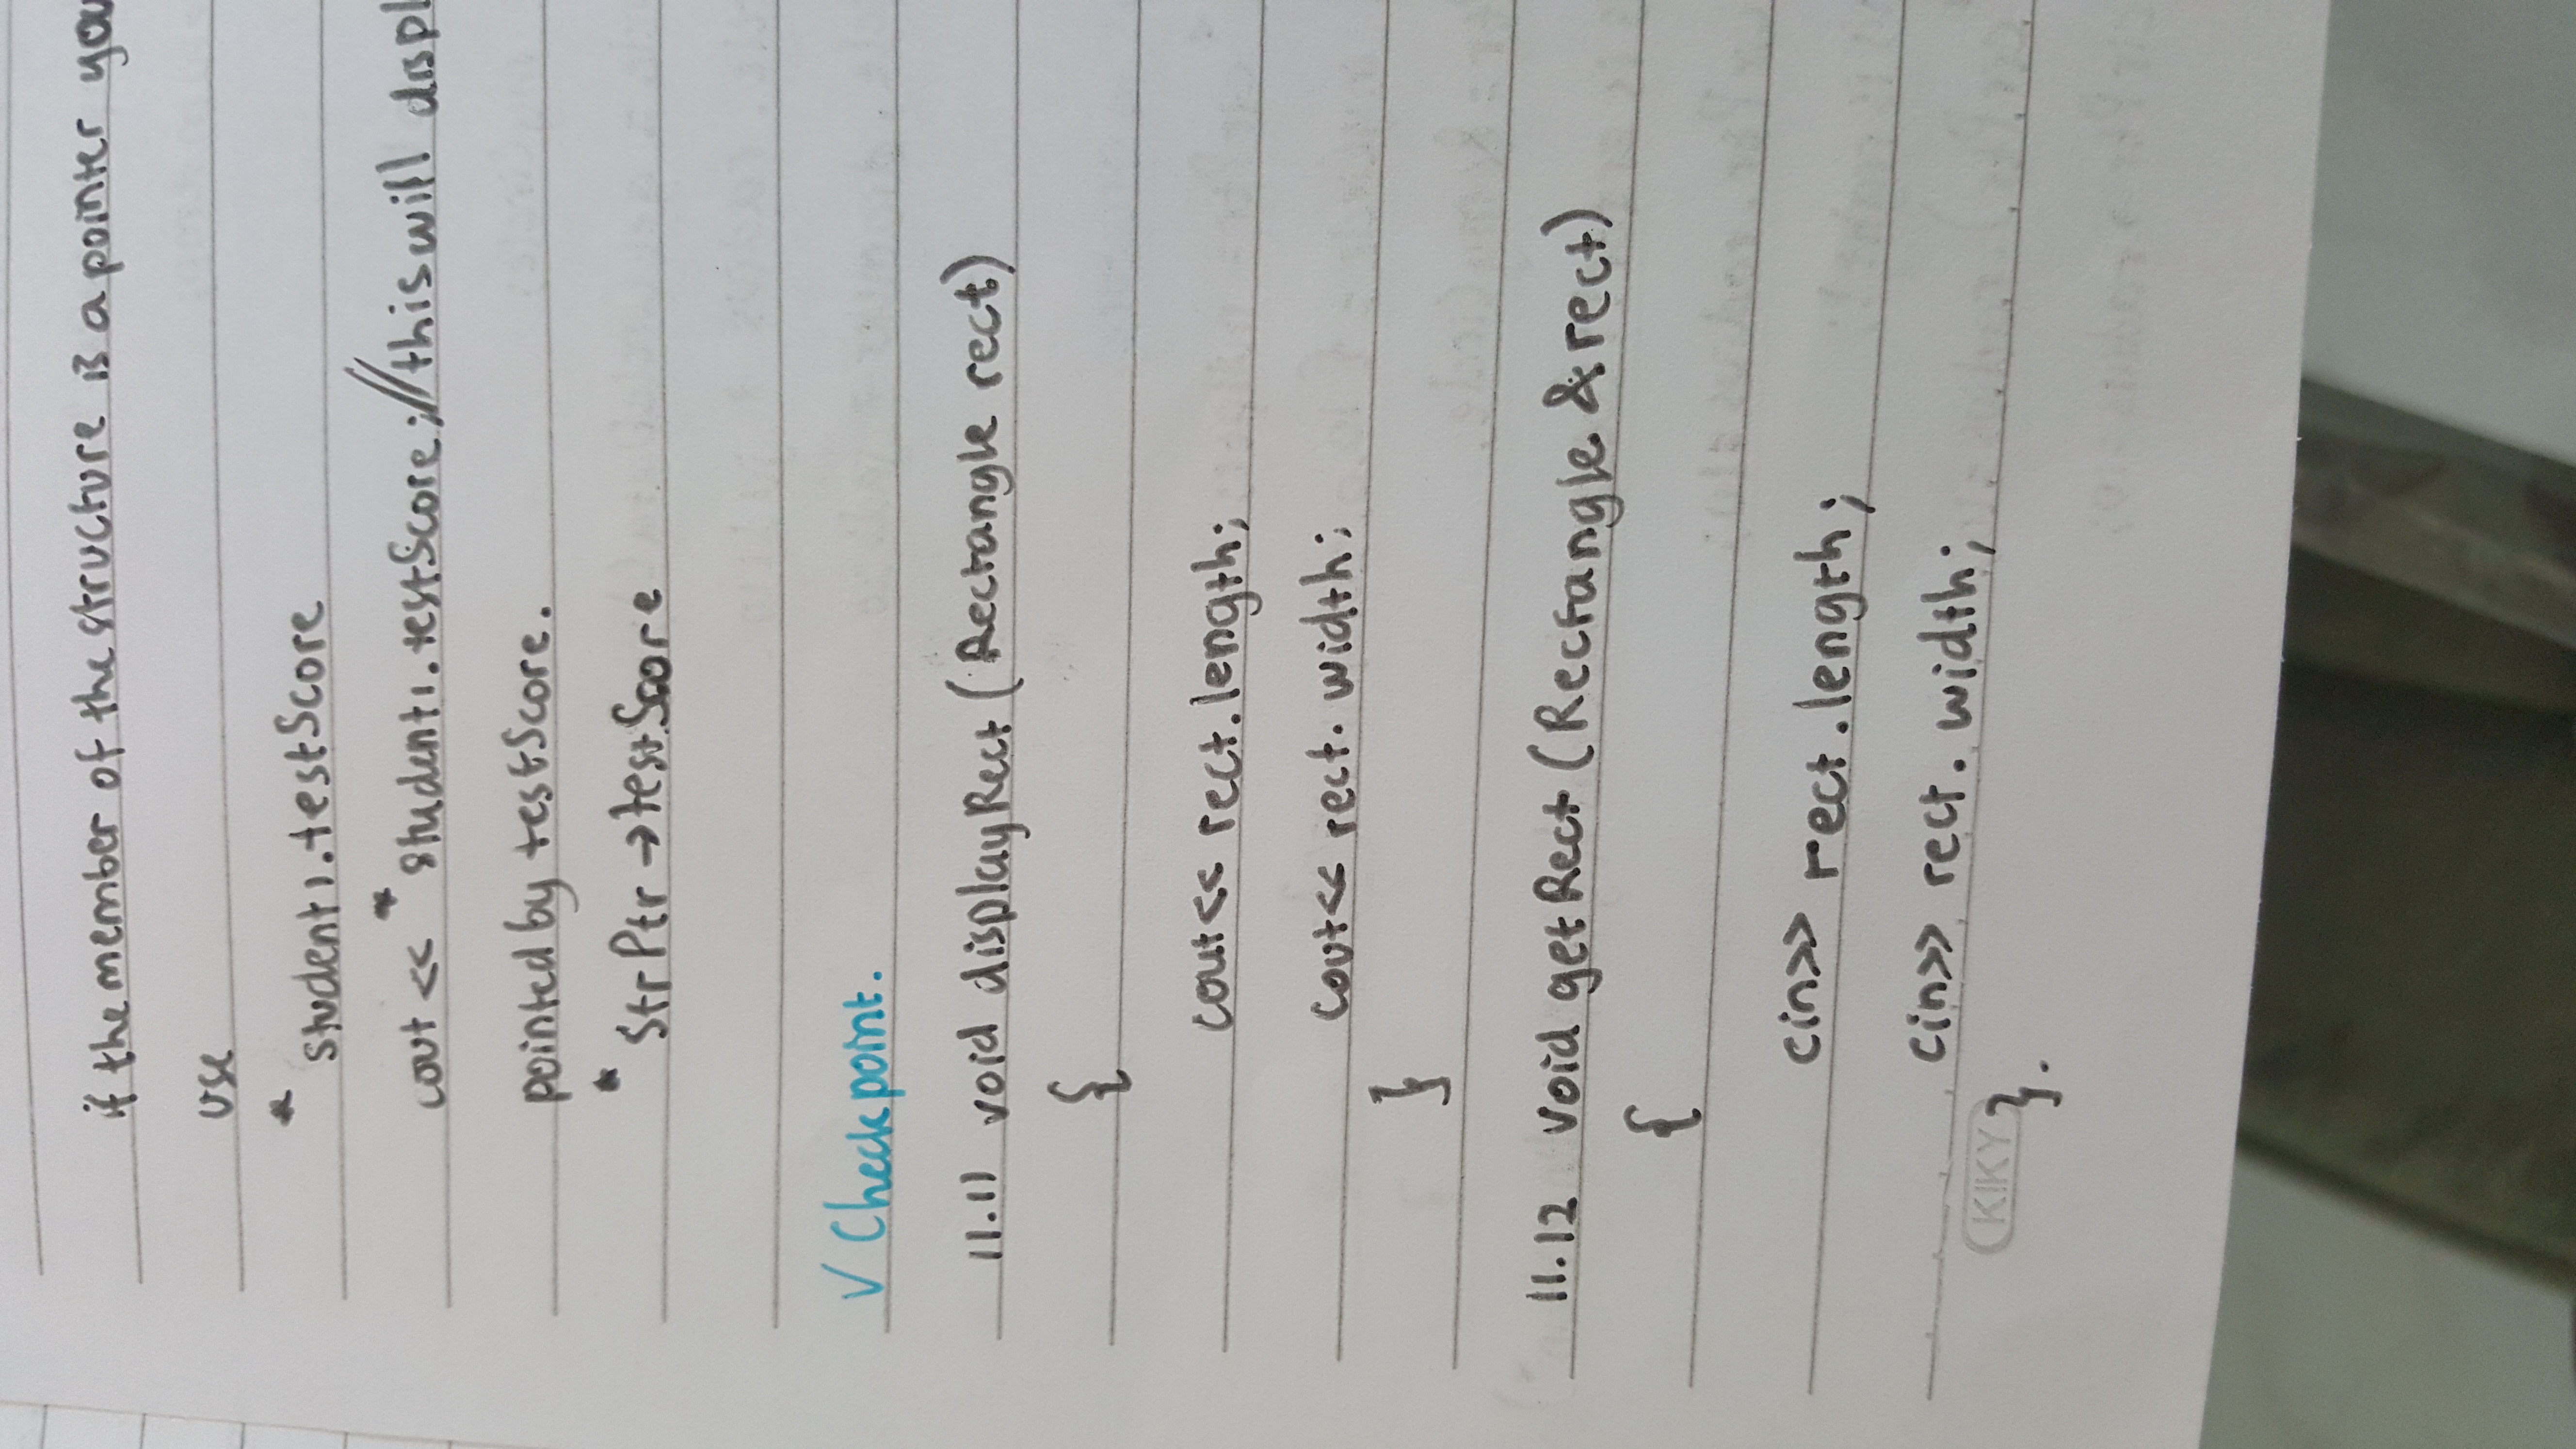 if the member of the structure is a pointer you
use
* student1.testScore
cout << * student1.testScore; //this will displ
pointed by testScore.
* StrPtr →testScore
√ Checkpoint.
11.11 void displayRect (Rectangle rect)
{
cout<< rect.length;
cout<< rect. width;
}
11.12 void getRect (Rectangle &rect)
{
cin>> rect.length;
cin>> rect. width;
KIKY
}.